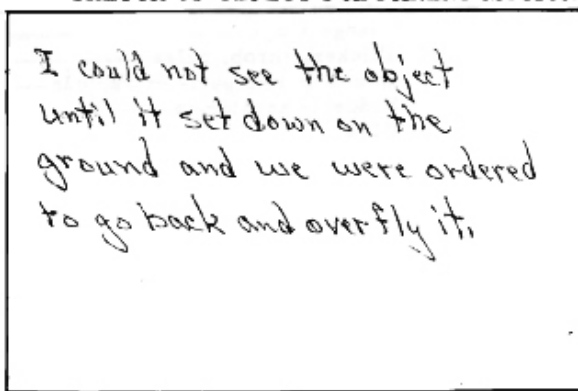 I could not see the object
until it set down on the
ground and we were ordered
to go back and overfly it.